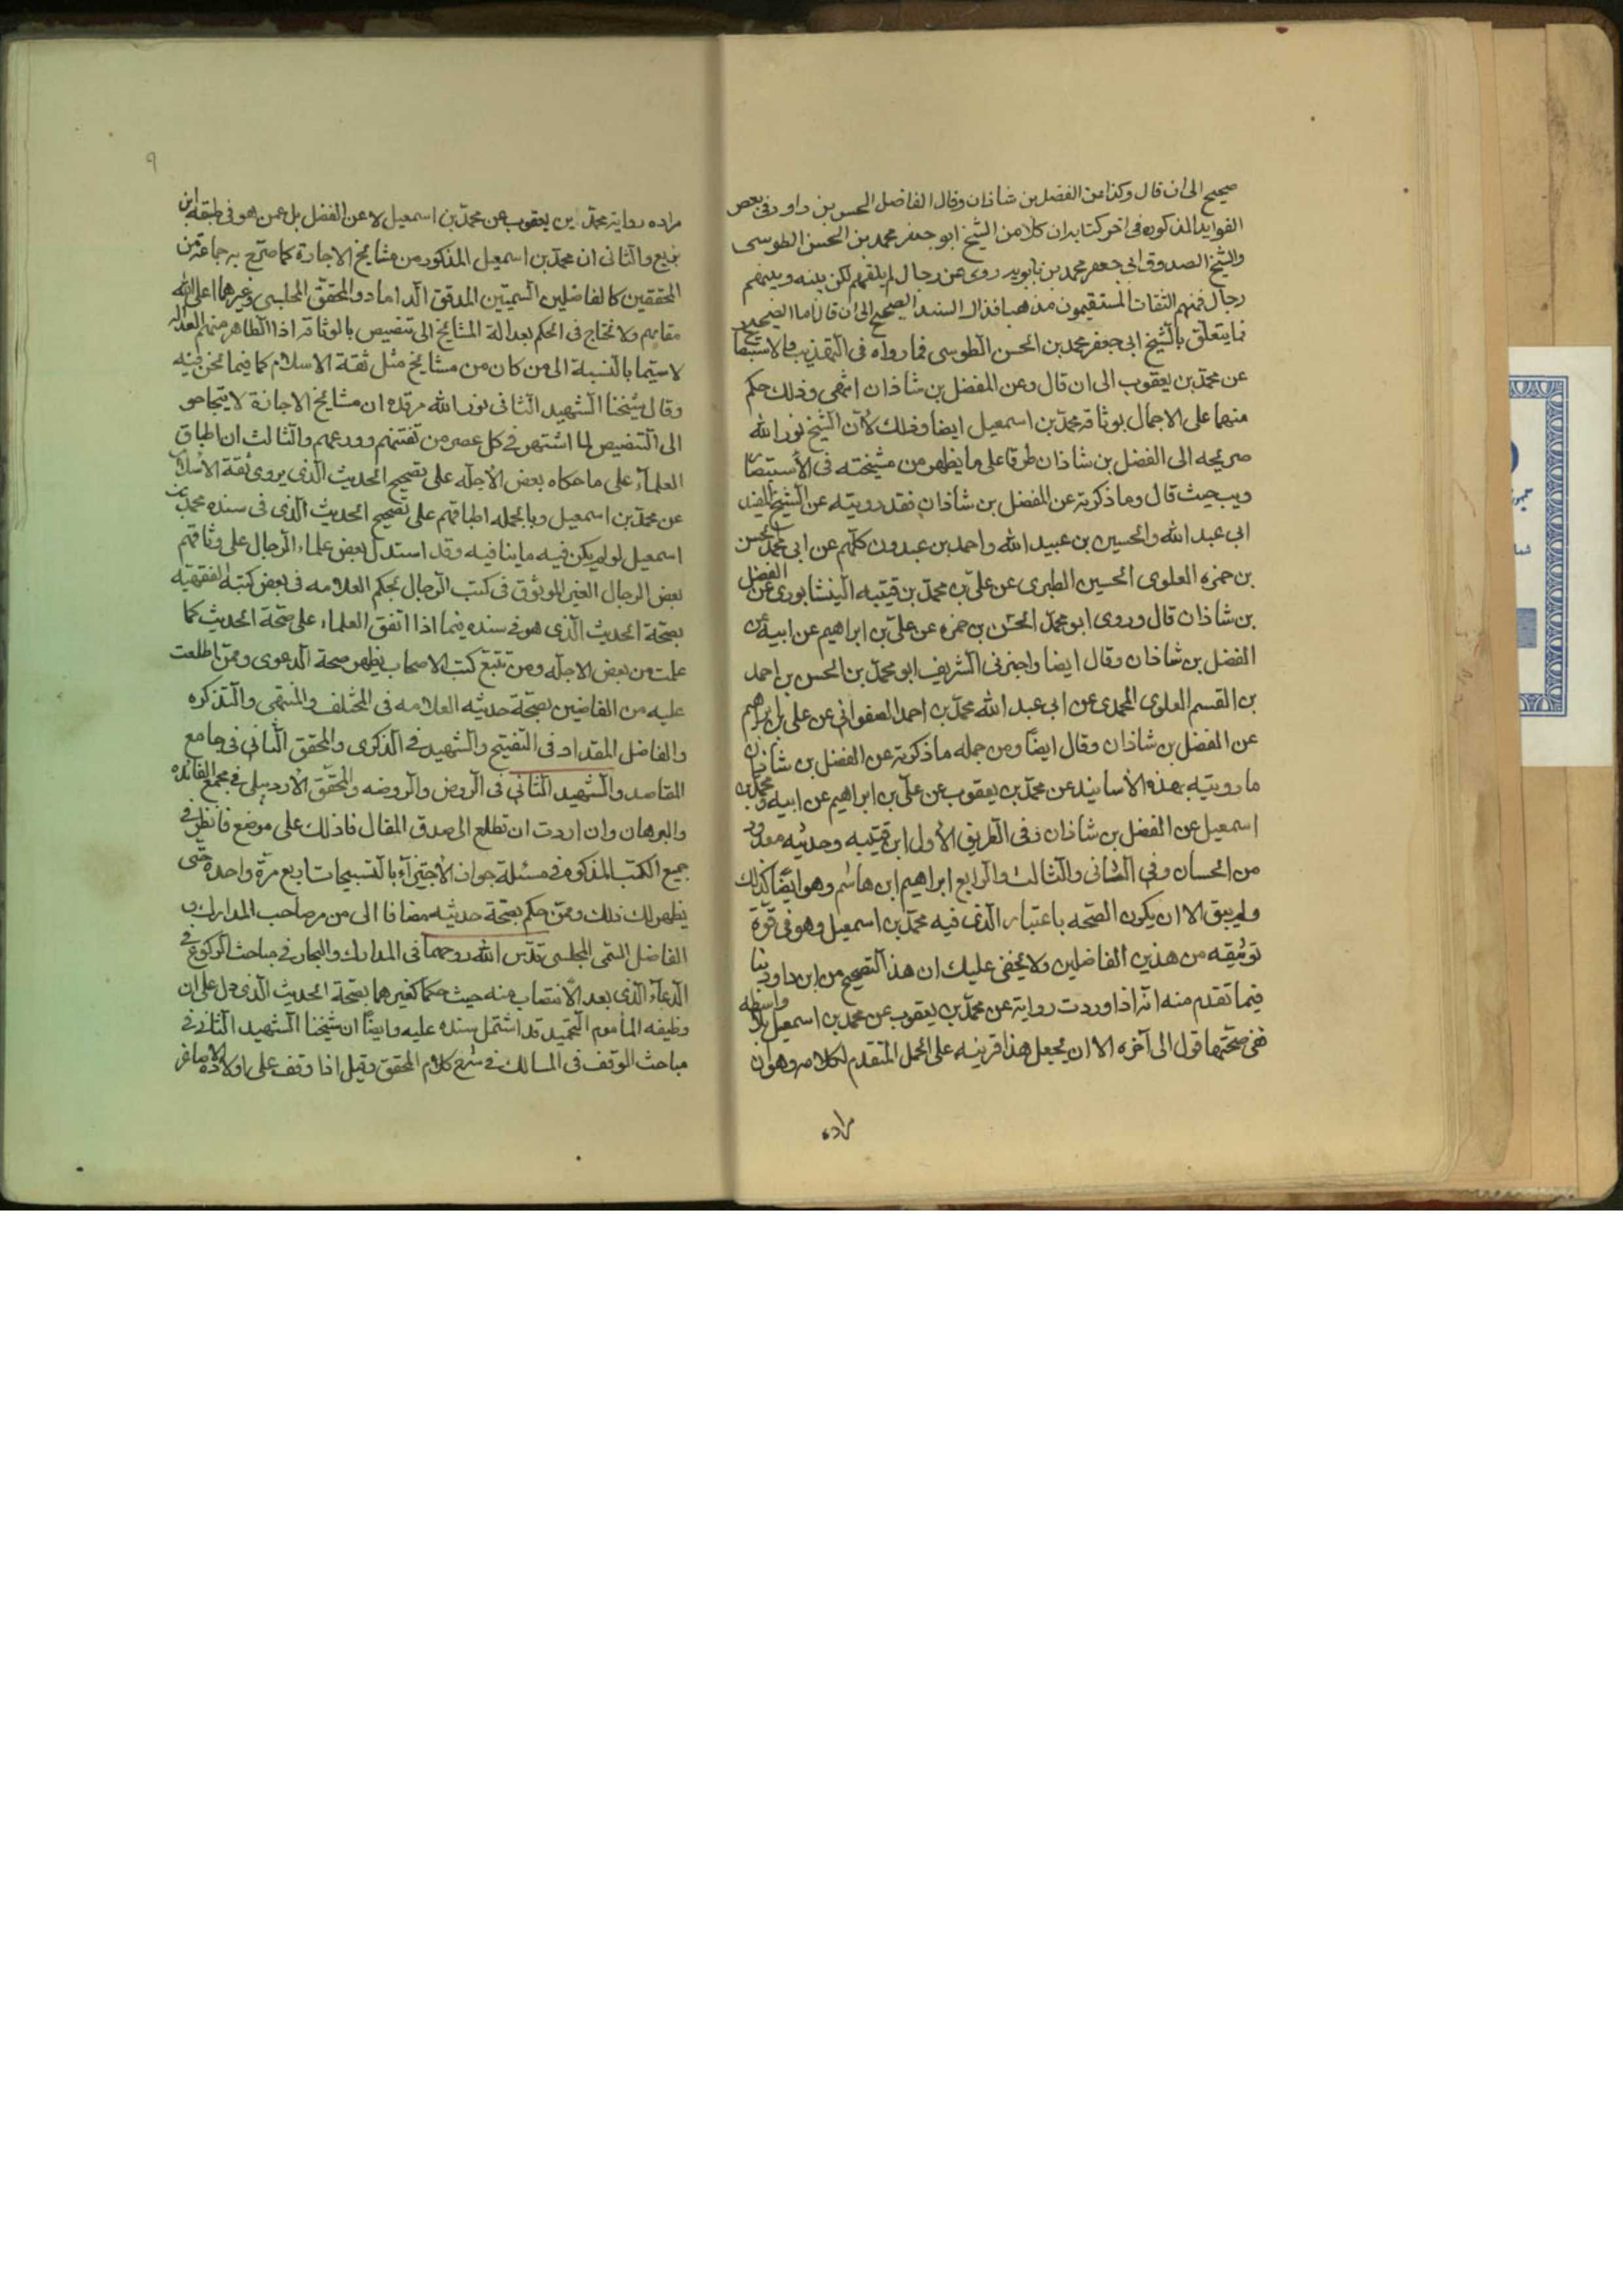 صحيح الى ان قال وكذا من الفضل بن شاذان وقال الفاضل الحسن بن داود في بعض
الفوايد المذكوره في اخر كتابه ان كلا من الشيخ ابو جعفر محمد بن الحسن الطوسى
والشيخ الصدوق ابي جعفر محمد بن بابويه روى عن رجال لم يلقهم لكن بينه وبينهم
رجال فمنهم الثقات المستقيمون مذهبا فذاك السند الصحيح الى ان قال اما الصحيح
فما يتعلق بالشيخ ابى جعفر محمد بن الحسن الطوسى فما رواه فى التهذيب والاستبصار
عن محمد بن يعقوب الى ان قال وعن الفضل بن شاذان انتهى وذلك حكم
منهما على الاجمال بوثاقة محمد بن اسمعيل ايضا وذلك لأن الشيخ نور الله
ضريحه الى الفضل بن شاذان طرقا على ما يظهر من مشيخته فى الأستبصار
ويب حيث قال وما ذكرته عن الفضل بن شاذان فقد رويته عن الشيخ المفيد
ابى عبد الله والحسين بن عبيد الله واحمد بن عبدون كلهم عن ابى محمد الحسن
بن حمزه العلوى الحسين الطبرى عن على بن محمد بن قتيبه النيشابورى عن الفضل
بن شاذان قال وروى ابو محمد الحسن بن حمزه عن على بن ابراهيم عن ابيه عن
الفضل بن شاذان وقال ايضا واخبرنى الشريف ابو محمد بن الحسن بن احمد
بن القسم العلوى المحمدى عن ابى عبد الله محمد بن احمد الصفوانى عن على بن ابراهيم
عن الفضل بن شاذان وقال ايضًا ومن جمله ما ذكرته عن الفضل بن شاذان
ما رويته بهذه الأسانيد عن محمد بن يعقوب عن على بن ابراهيم عن ابيه ومحمد بن
اسمعيل عن الفضل بن شاذان ففى الطريق الأول ابن قتيبه وحديثه معدود
من الحسان وفى الثانى والثالث والرابع ابراهيم ابن هاشم وهو ايضًا كذلك
ولم يبق الا ان يكون الصحه باعتبار الذى فيه محمد بن اسمعيل وهو فى قوة
توثيقه من هذين الفاضلين ولا يخفى عليك ان هذا التصحيح من ابن داود ينا
فيما تقدم منه انه اذا وردت رواية عن محمد بن يعقوب عن محمد بن اسمعيل بلا واسطه
ففى صحتها قول الى آخره الا ان يجعل هذا قرينه على الحمل المتقدم لكلامه وهو ان
مراده
٩
مراده رواية محمد بن يعقوب عن محمد بن اسمعيل لا عن الفضل بل عمن هو فى طبقه ابن
بزيع والثانى ان محمد بن اسمعيل المذكور من مشايخ الاجازة كما صرح به جماعة من
المحققين كالفاضلين السميين المدقق الداماد والمحقق المجلسى وغيرهما اعلى الله
مقامهم ولا نحتاج فى الحكم بعدالة المشايخ الى تنصيص بالوثاقة اذا الظاهر منهم العداله
لا سيما بالنسبة الى من كان من مشايخ مثل ثقة الاسلام كما فيما نحن فيه
وقال شيخنا الشهيد الثانى نور الله مرقده ان مشايخ الاجازة لا يحتاجو
الى التنصيص لما اشتهر فى كل عصر من ثقتهم وورعهم والثالث ان اطباق
العلمآء على ما حكاه بعض الأجله على تصحيح الحديث الذى يروى ثقة الاسلام
عن محمد بن اسمعيل وبالجمله اطباقهم على تصحيح الحديث الذى فى سنده محمد بن
اسمعيل لو لم يكن فيه ما ينافيه وقد استدل بعض علماء الرجال على وثاقتهم
بعض الرجال الغير الموثوق فى كتب الرجال بحكم العلامه فى بعض كتبه الفقهيه
بصحة الحديث الذى هو فى سنده فيما اذا اتفق العلماء على صحة الحديث كما
علمت من بعض الاجله ومن تتبع كتب الاصحاب يظهر صحة الدعوى وممن اطلعت
عليه من القاضين بصحة حديثه العلامه فى المختلف والمنتهى والتذكره
والفاضل المقداد فى التنقيح والشهيد فى الذكرى والمحقق الثانى فى جامع
المقاصد والشهيد الثانى فى الروض والروضه والمحقق الأردبيلى فى مجمع الفائده
والبرهان وان اردت ان تطلع الى صدق المقال فاذلك على موضع فانظر فى
جميع الكتب المذكوره فى مسئلة جواز الأجتزآء بالتسبيحات اربع مرة واحدة حتى
يظهر لك ذلك وممن حكم بصحة حديثه مضافا الى من مر صاحب المدارك و
الفاضل السمى المجلسى قدس الله روحهما فى المدارك والبحار فى مباحث الركوع فى
الدعآء الذى بعد الأنتصاب منه حيث حكما كغيرهما بصحة الحديث الذى دل على ان
وظيفه المأموم التحميد قد اشتمل سنده عليه وايضًا ان شيخنا الشهيد الثانى فى
مباحث الوقف فى المسالك فى شرح كلام المحقق وقيل اذا وقف على اولاده الاصاغر